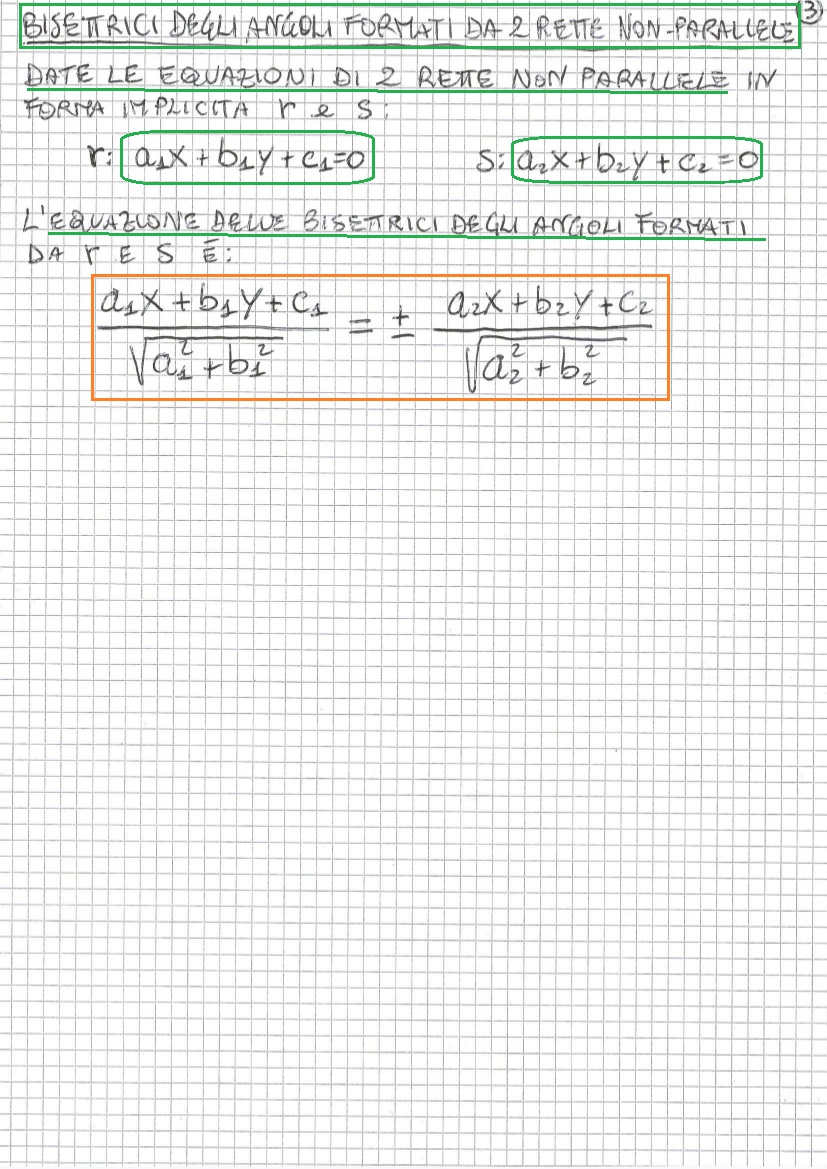 3
BISETTRICI DEGLI ANGOLI FORMATI DA 2 RETTE NON-PARALLELE
DATE LE EQUAZIONI DI 2 RETTE NON PARALLELE IN
FORMA IMPLICITA r e s:
r: a₁x + b₁y + c₁=0 s: a₂x + b₂y + c₂ = 0
L'EQUAZIONE DELLE BISETTRICI DEGLI ANGOLI FORMATI
DA r E S É:
(a₁x + b₁y + c₁)/√(a₁² + b₁²) = ± (a₂x + b₂y + c₂)/√(a₂² + b₂²)